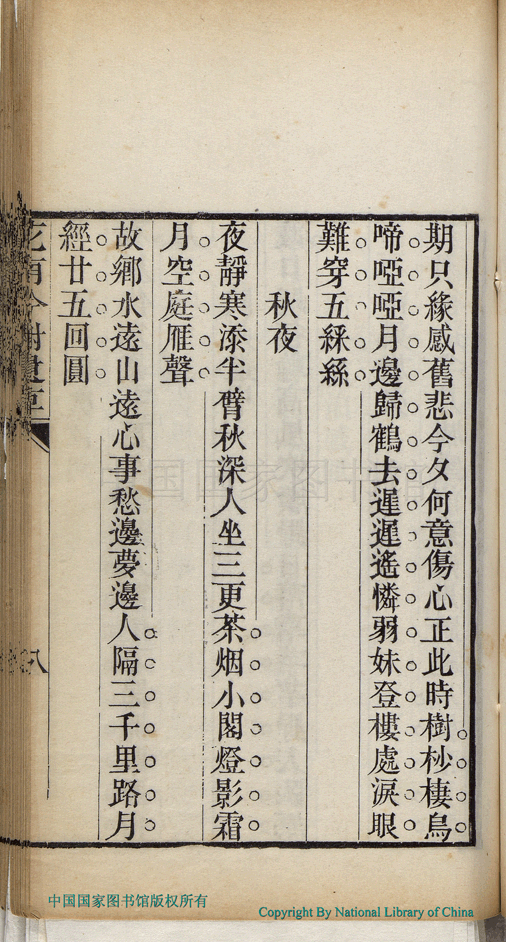 期只緣感舊悲今夕何意傷心正此時樹杪棲烏
啼啞啞月邊歸鶴去遲遲遙憐弱妹登樓處淚眼
難穿五綵絲
秋夜
夜靜寒添半臂秋深人坐三更茶烟小閣燈影霜
月空庭雁聲
故鄉水遠山遠心事愁邊夢邊人隔三千里路月
經廿五回圓
八
中国国家图书馆版权所有
Copyright By National Library of China